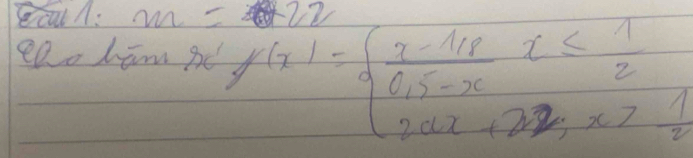 Câu 1: m = 22
Cho hàm số f(x) = { x - 1,8 / 0,5 - x   x ≤ 1/2
2ax + 22; x > 1/2